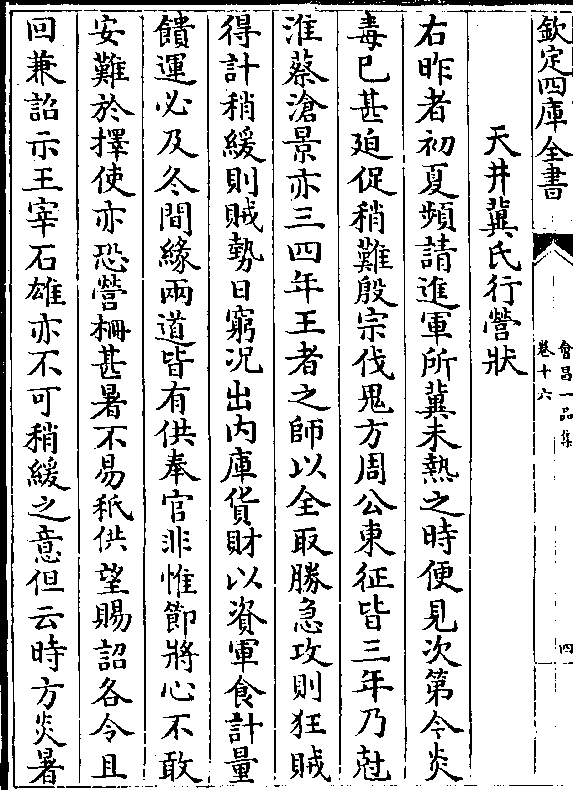 欽定四庫全書
會昌一品集
卷十六
四
天井冀氏行營狀
右昨者初夏頻請進軍所冀未熱之時便見次第今炎
毒已甚廹促稍難殷宗伐鬼方周公東征皆三年乃尅
淮蔡滄景亦三四年王者之師以全取勝急攻則狂賊
得計稍緩則賊勢日窮況出内庫貨財以資軍食計量
饋運必及冬間緣兩道皆有供奉官非惟節將心不敢
安難於擇使亦恐營柵甚暑不易秪供望賜詔各令且
回兼詔示王宰石雄亦不可稍緩之意但云時方炎暑